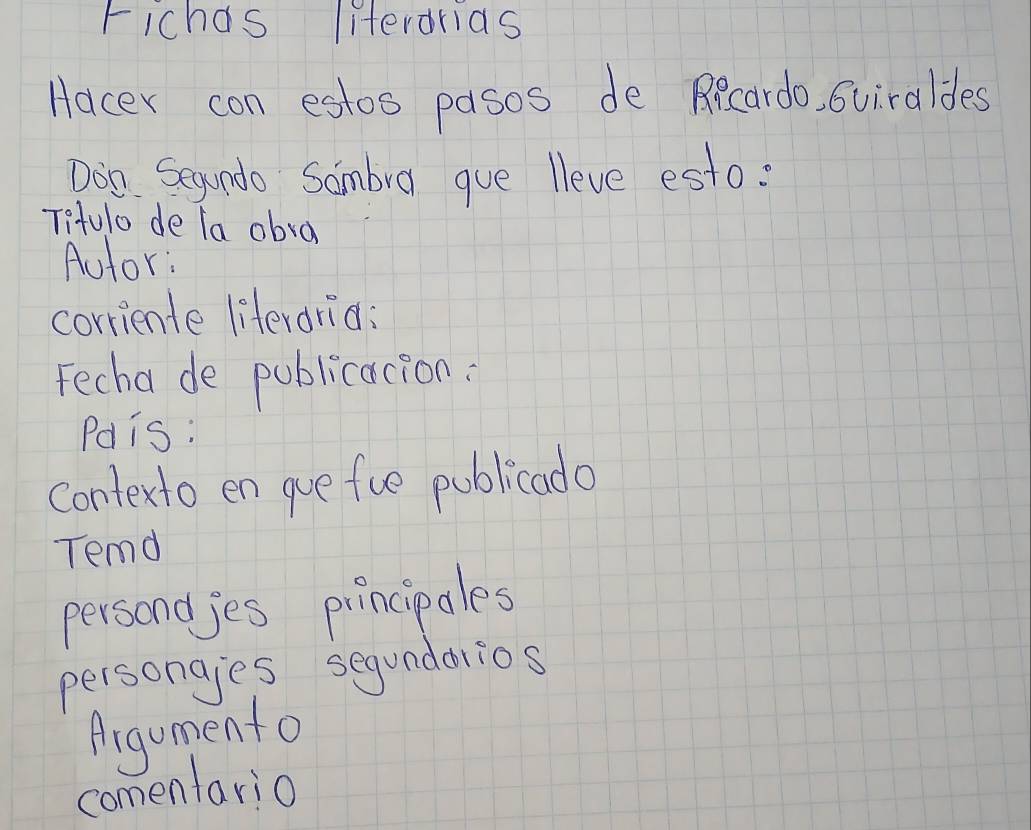 Fichas literarias
Hacer con estos pasos de Ricardo. Guiraldes
Don Segundo Sombra que lleve esto:
Titulo de la obra
Autor:
corriente literaria:
Fecha de publicacion:
País:
Contexto en que fue publicado
Tema
personajes principales
personajes segundarios
Argumento
comentario